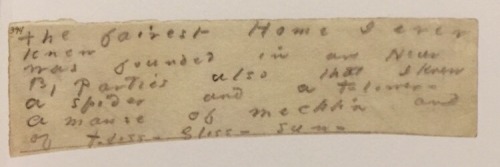 the fairest Home I ever
knew
was founded in an Hour
By Parties also that I knew
a spider and a Flower -
a manse of mechlin and
of Floss - Gloss - Sun -